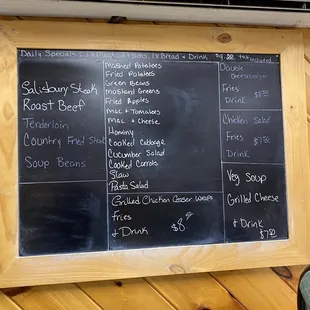 Daily Specials
Bread + Drink
tax included
Salisbury Steak
Roast Beef
Tenderloin
Country Fried Steak
Soup Beans
Mashed Potatoes
Fried Potatoes
Green Beans
Mustard Greens
Fried Apples
Mac + Tomatoes
Mac + Cheese
Hominy
Cooked Cabbage
Cucumber Salad
Cooked Carrots
Slaw
Pasta Salad
Grilled Chicken Wraps
Fries
+ Drink
Double
Cheeseburger
Fries
Drink
Chicken Salad
Fries
Drink
Veg Soup
Grilled Cheese
+ Drink